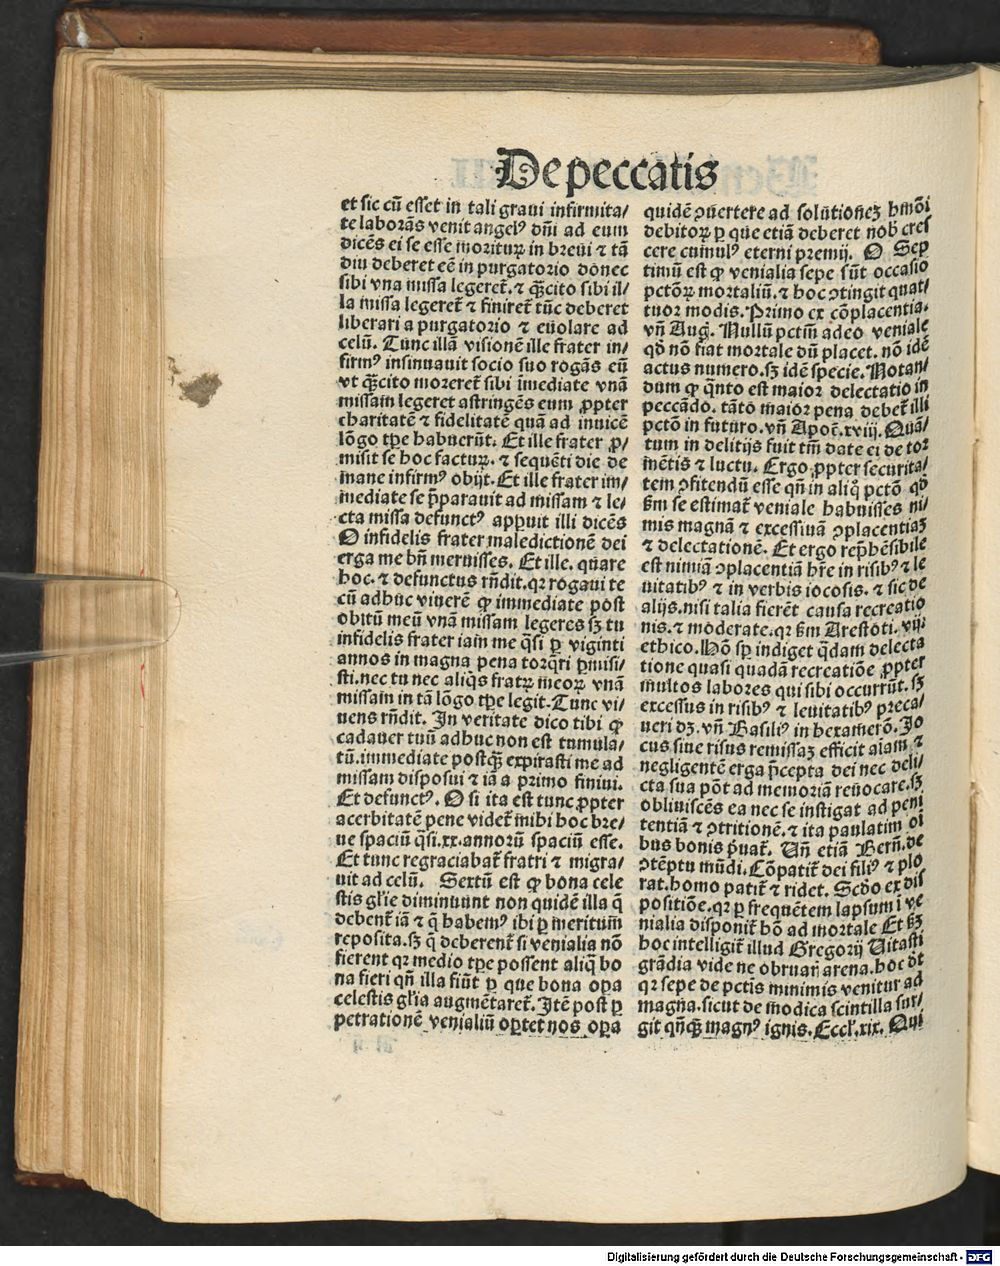 De peccatis
et sic cū esset in tali graui infirmita/
te laborās venit angelꝰ dñi ad eum
dicēs ei se esse moriturꝝ in breui ⁊ tā
diu deberet eē in purgatorio donec
sibi vna missa legeret̄. ⁊ q̄ȝcito sibi il/
la missa legeret̄ ⁊ finiret̄ tūc deberet
liberari a purgatorio ⁊ euolare ad
celū. Tunc illā visionē ille frater in/
firmꝰ insinuauit socio suo rogās eū
vt q̄ȝcito moreret̄ sibi īmediate vnā
missam legeret astringēs eum ꝓpter
charitatē ⁊ fidelitatē quā ad inuicē
lōgo tꝑe habuerūt. Et ille frater ꝓ/
misit se hoc facturꝝ. ⁊ sequēti die de
mane infirmꝰ obijt. Et ille frater im/
mediate se p̄parauit ad missam ⁊ le/
cta missa defunctꝰ apꝑuit illi dicēs
O infidelis frater maledictionē dei
erga me bn̄ meruisses. Et ille. quare
hoc. ⁊ defunctus rn̄dit. qꝛ rogaui te
cū adhuc viuerē ꝙ immediate post
obitū meū vnā missam legeres sȝ tu
infidelis frater iam me q̄si ꝑ viginti
annos in magna pena torq̄ri ꝑmisi/
sti. nec tu nec aliq̄s fratrꝝ meorꝝ vnā
missam in tā lōgo tꝑe legit. Tunc vi/
uens rn̄dit. In veritate dico tibi ꝙ
cadauer tuū adhuc non est tumula/
tū. immediate postq̄ȝ expirasti me ad
missam disposui ⁊ iā a primo finiui.
Et defunctꝰ. O si ita est tunc ꝓpter
acerbitatē pene videt̄ mihi hoc bre/
ue spaciū q̄si .xx. annorū spaciū esse.
Et tunc regraciabat̄ fratri ⁊ migra/
uit ad celū. Sextū est ꝙ bona cele
stis gl̄ie diminuunt non quidē illa q̄
debent̄ iā ⁊ q̄ habemꝰ ibi ꝑ meritum
reposita. sȝ q̄ deberent̄ si venialia nō
fierent qꝛ medio tꝑe possent aliq̄ bo
na fieri qn̄ illa fiūt ꝑ que bona oꝑa
celestis gl̄ia augmētaret̄. Itē post ꝑ
petrationē venialiū oꝑtet nos oꝑa
quidē ꝯuertere ad solutionēȝ hm̄ōi
debitorꝝ ꝑ que etiā deberet nob̄ cres
cere cumulꝰ eterni premij. O Sep
timū est ꝙ venialia sepe sūt occasio
pctōꝝ mortaliū. ⁊ hoc ꝯtingit quat/
tuor modis. Primo ex cōplacentia.
vn̄ Auḡ. Nullū pctm̄ adeo veniale
qđ nō fiat mortale dū placet. nō idē
actus numero. sȝ idē specie. Notan/
dum ꝙ q̄nto est maior delectatio in
peccādo. tāto maior pena debet̄ illi
pctō in futuro. vn̄ Apoc̄. xviij. Quā/
tum in delitijs fuit tm̄ date ei de tor
mētis ⁊ luctu. Ergo ꝓpter securita/
tem ꝯfitendū esse qn̄ in aliq̄ pctō qđ
km̄ se estimat̄ veniale habuisses ni/
mis magnā ⁊ excessiuā ꝯplacentiaȝ
⁊ delectationē. Et ergo rep̄hēsibile
est nimiā ꝯplacentiā hr̄e in risibꝰ ⁊ le
uitatibꝰ ⁊ in verbis iocosis. ⁊ sic de
alijs. nisi talia fierēt causa recreatio
nis. ⁊ moderate. qꝛ km̄ Arestoti. vij.
ethico. Hō sꝑ indiget q̄dam delecta
tione quasi quadā recreatiōe ꝓpter
multos labores qui sibi occurrūt. sȝ
excessus in risibꝰ ⁊ leuitatibꝰ preca/
ueri dȝ. vn̄ Basiliꝰ in hexamerō. Jo
cus siue risus remissaȝ efficit aiam ⁊
negligentē erga p̄cepta dei nec deli/
cta sua pōt ad memoriā reuocare. sȝ
obliuiscēs ea nec se instigat ad peni
tentiā ⁊ ꝯtritionē. ⁊ ita paulatim oī
bus bonis p̄uat̄. Un̄ etiā Bern̄. de
ꝯtēptu mūdi. Cōpatit̄ dei filiꝰ ⁊ plo
rat. homo patit̄ ⁊ ridet. Scđo ex dis
positiōe. qꝛ ꝑ frequētem lapsum ī ve
nialia disponit̄ hō ad mortale Et km̄
hoc intelligit̄ illud Gregorij Uitasti
grādia vide ne obruar̄ arena. hoc
qꝛ sepe de pctīs minimis venitur ad
magna. sicut de modica scintilla sur/
git qn̄q̄ȝ magnꝰ ignis. Eccl̄. xix. Qui
Digitalisierung gefördert durch die Deutsche Forschungsgemeinschaft - DFG